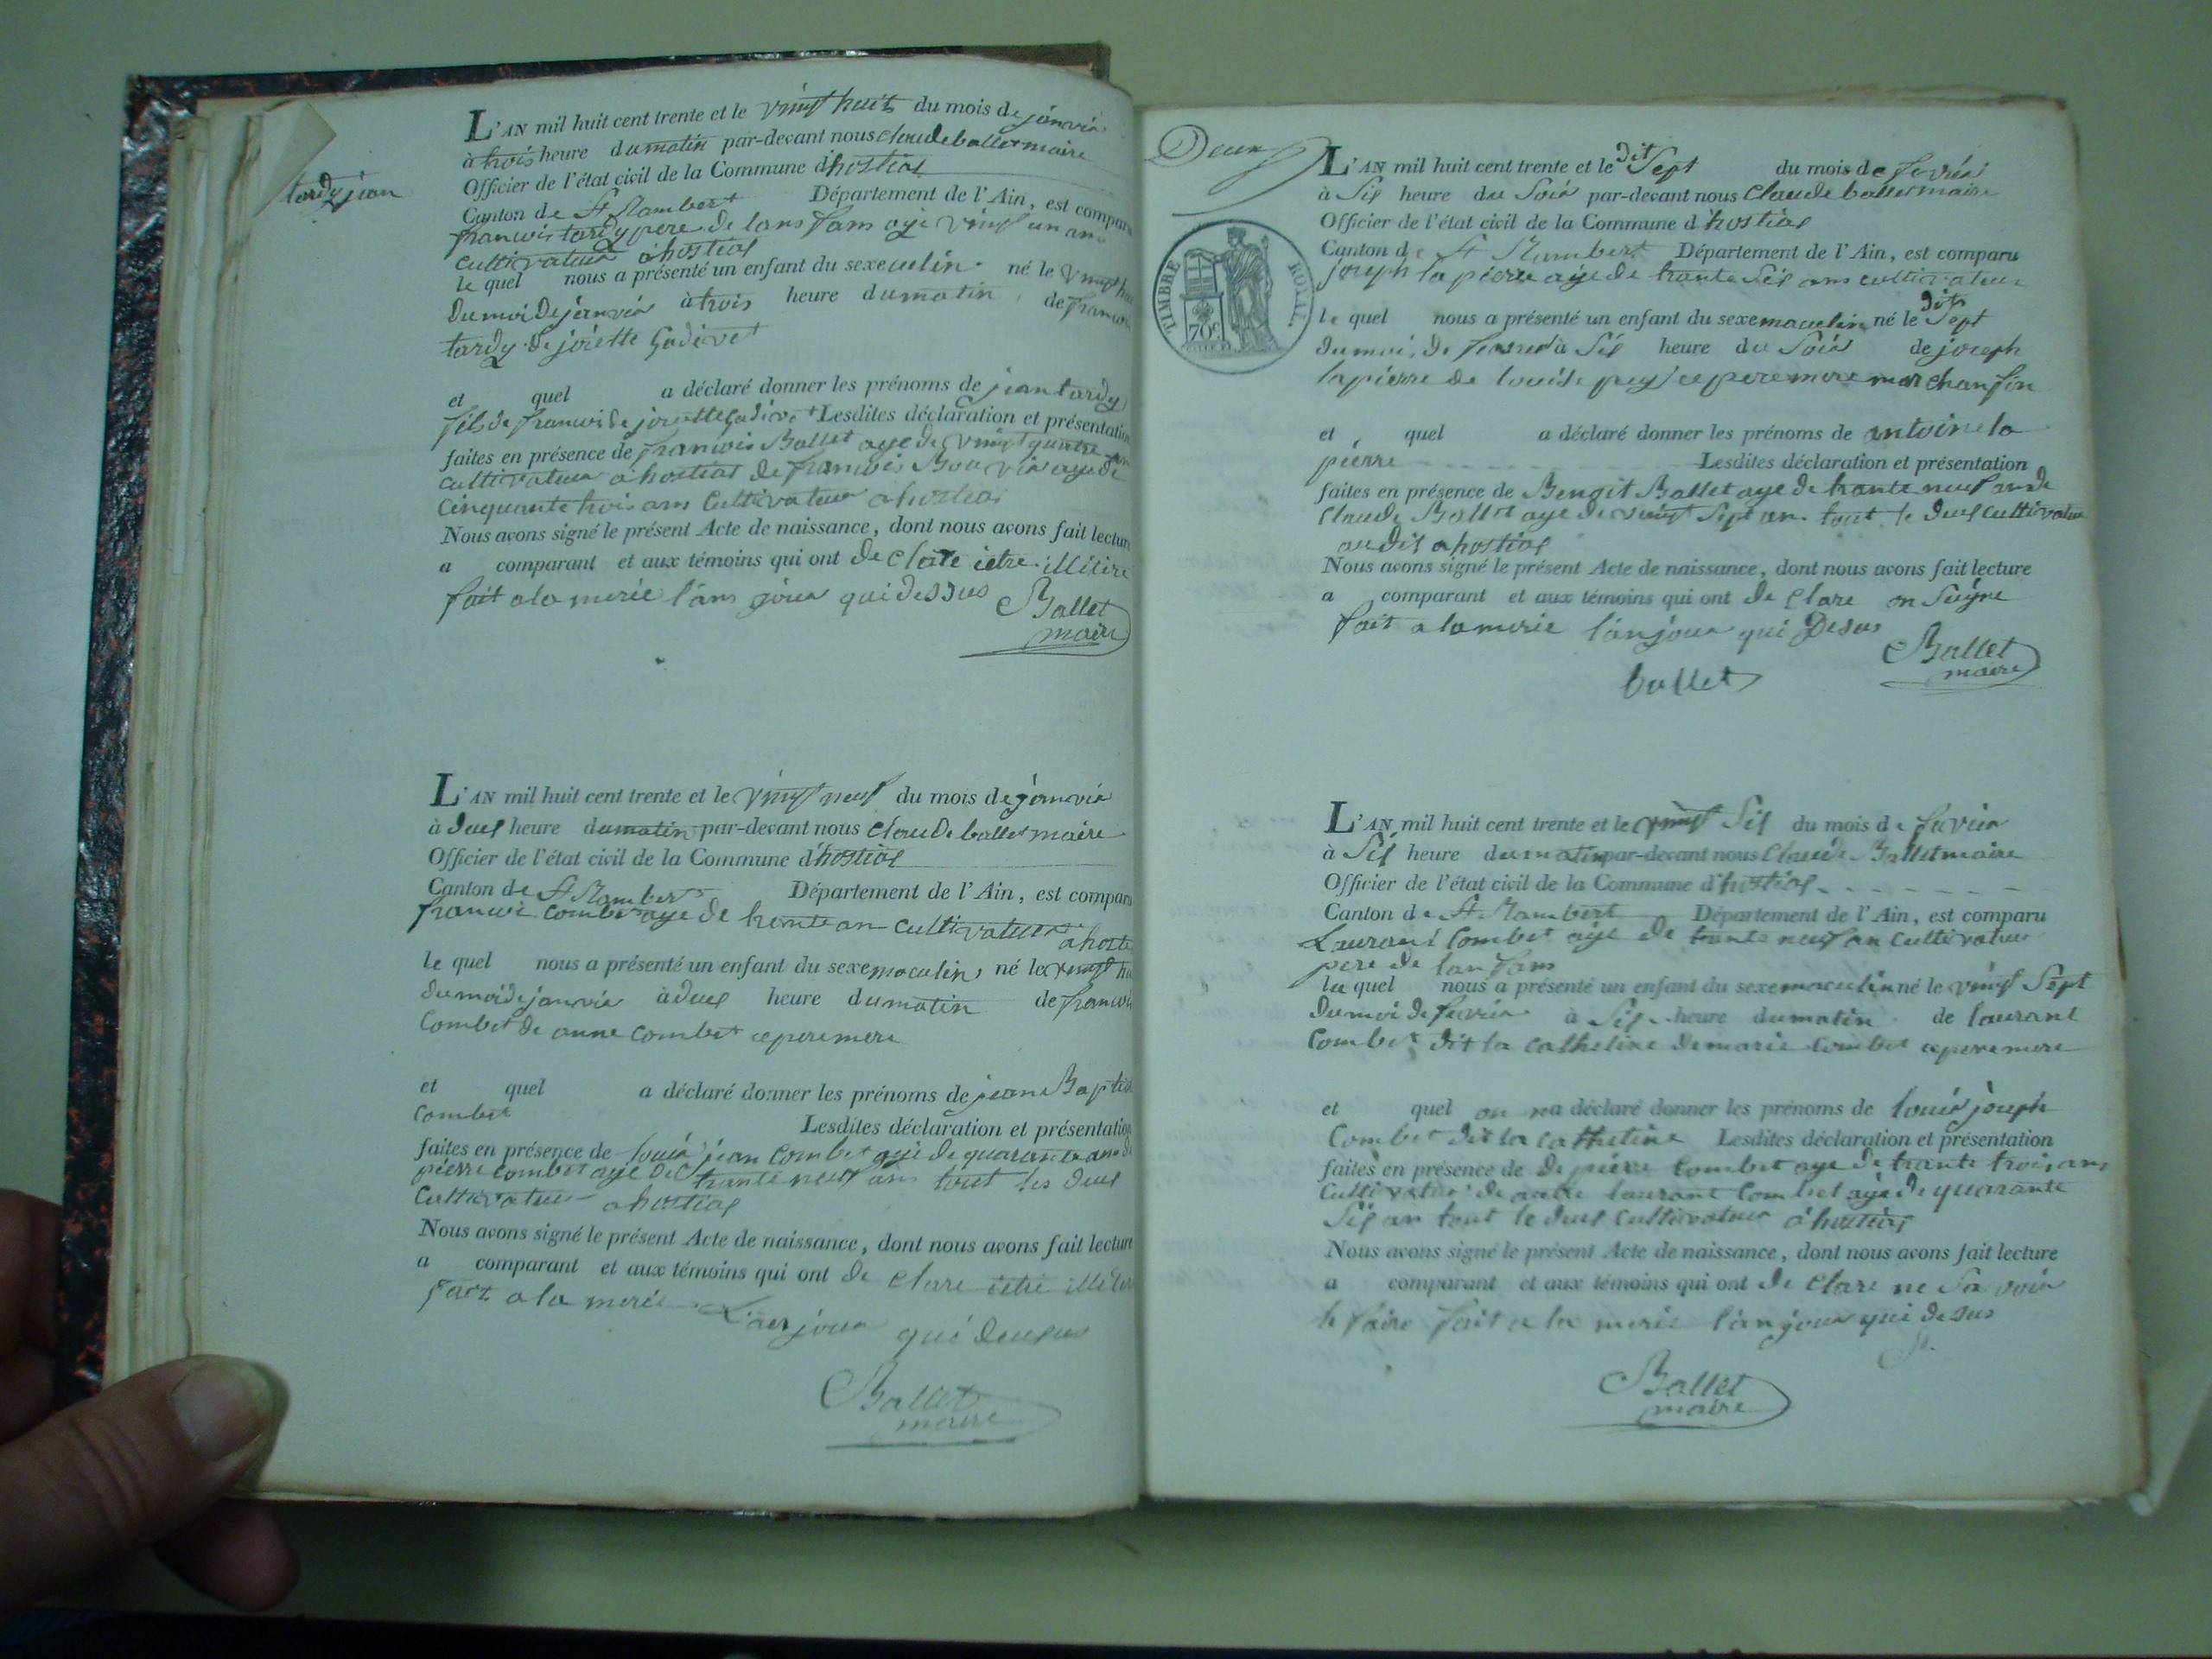 tardy jean
L'AN mil huit cent trente et le vingt huit du mois de janvié
à trois heure du matin par-devant nous claude ballet maire
Officier de l'état civil de la Commune d'hostias
Canton de St Rambert Département de l'Ain, est comparu
francois tardy pere de lans fans agé vingt un an
cultivateur a hostias
le quel nous a présenté un enfant du sexe né le vingt
du moi de janvié à trois heure du matin de
tardy de joiette
et quel a déclaré donner les prénoms de jean tardy
fils de francoi de Lesdites déclaration et présentation
faites en présence de francois Ballet age de vingt quatre an
cultivateur a hostias de francois age de
cinquante trois ans cultivateur a hostias
Nous avons signé le présent Acte de naissance, dont nous avons fait lecture
a comparant et aux témoins qui ont de clare
fait a la merie l'an jour qui dessus Ballet
maire
L'AN mil huit cent trente et le vingt neuf du mois de janvié
à deus heure du matin par-devant nous claude ballet maire
Officier de l'état civil de la Commune d'hostias
Canton de St Rambert Département de l'Ain, est comparu
francoi combet age de trente an cultivateur a
le quel nous a présenté un enfant du sexe maculin né le vingt
du moi de janvié à deus heure du matin de
Combet de anne combet ce pere mere
et quel a déclaré donner les prénoms de jean Baptis
combet Lesdites déclaration et présentation
faites en présence de loui jean combet agé de quarante ans de
pierre combet agé de trante neuf ans tout les deus
cultivateur a hostias
Nous avons signé le présent Acte de naissance, dont nous avons fait lecture
a comparant et aux témoins qui ont de clare
fait a la merie L'an jour qui
Ballet
maire
Deux
TIMBRE ROYAL
70c
L'AN mil huit cent trente et le dit Sept du mois de fevrié
à Sis heure du Soir par-devant nous Claude ballet maire
Officier de l'état civil de la Commune d'hostias
Canton de St Rambert Département de l'Ain, est comparu
joseph la pierre age de trante Sis ans cultivateur
le quel nous a présenté un enfant du sexe maculin né le dit Sept
du moi de à Sis heure du Soir de joseph
lapierre de louise ce pere mere
et quel a déclaré donner les prénoms de antoine la
pierre Lesdites déclaration et présentation
faites en présence de Benoit Ballet age de trante neuf an de
Claude Ballet age de vingt Sept an tout le deus cultivateur
au dis a hostias
Nous avons signé le présent Acte de naissance, dont nous avons fait lecture
a comparant et aux témoins qui ont de clare on Seigne
fait a la merie l'an jour qui Desus
Ballet
maire
ballet
L'AN mil huit cent trente et le vingt Sis du mois de fevrier
à Sis heure du matin par-devant nous Claude Ballet maire
Officier de l'état civil de la Commune d'hostias
Canton de St Rambert Département de l'Ain, est comparu
Laurant Combet age de trante neuf an cultivateur
pere de lan fans
le quel nous a présenté un enfant du sexe maculin né le vingt Sept
du moi de fevrier à Sis heure du matin de laurant
Combet dit la catheline de marie Combet ce pere mere
et quel on na déclaré donner les prénoms de louis joseph
Combet dit la catheline Lesdites déclaration et présentation
faites en présence de de pierre Combet age de trante trois ans
cultivateur de laurant Combet age de quarante
Sis an tout le deus cultivateur a hostias
Nous avons signé le présent Acte de naissance, dont nous avons fait lecture
a comparant et aux témoins qui ont de clare ne Savoir
le faire fait a la merie l'an jour qui desus
Ballet
maire